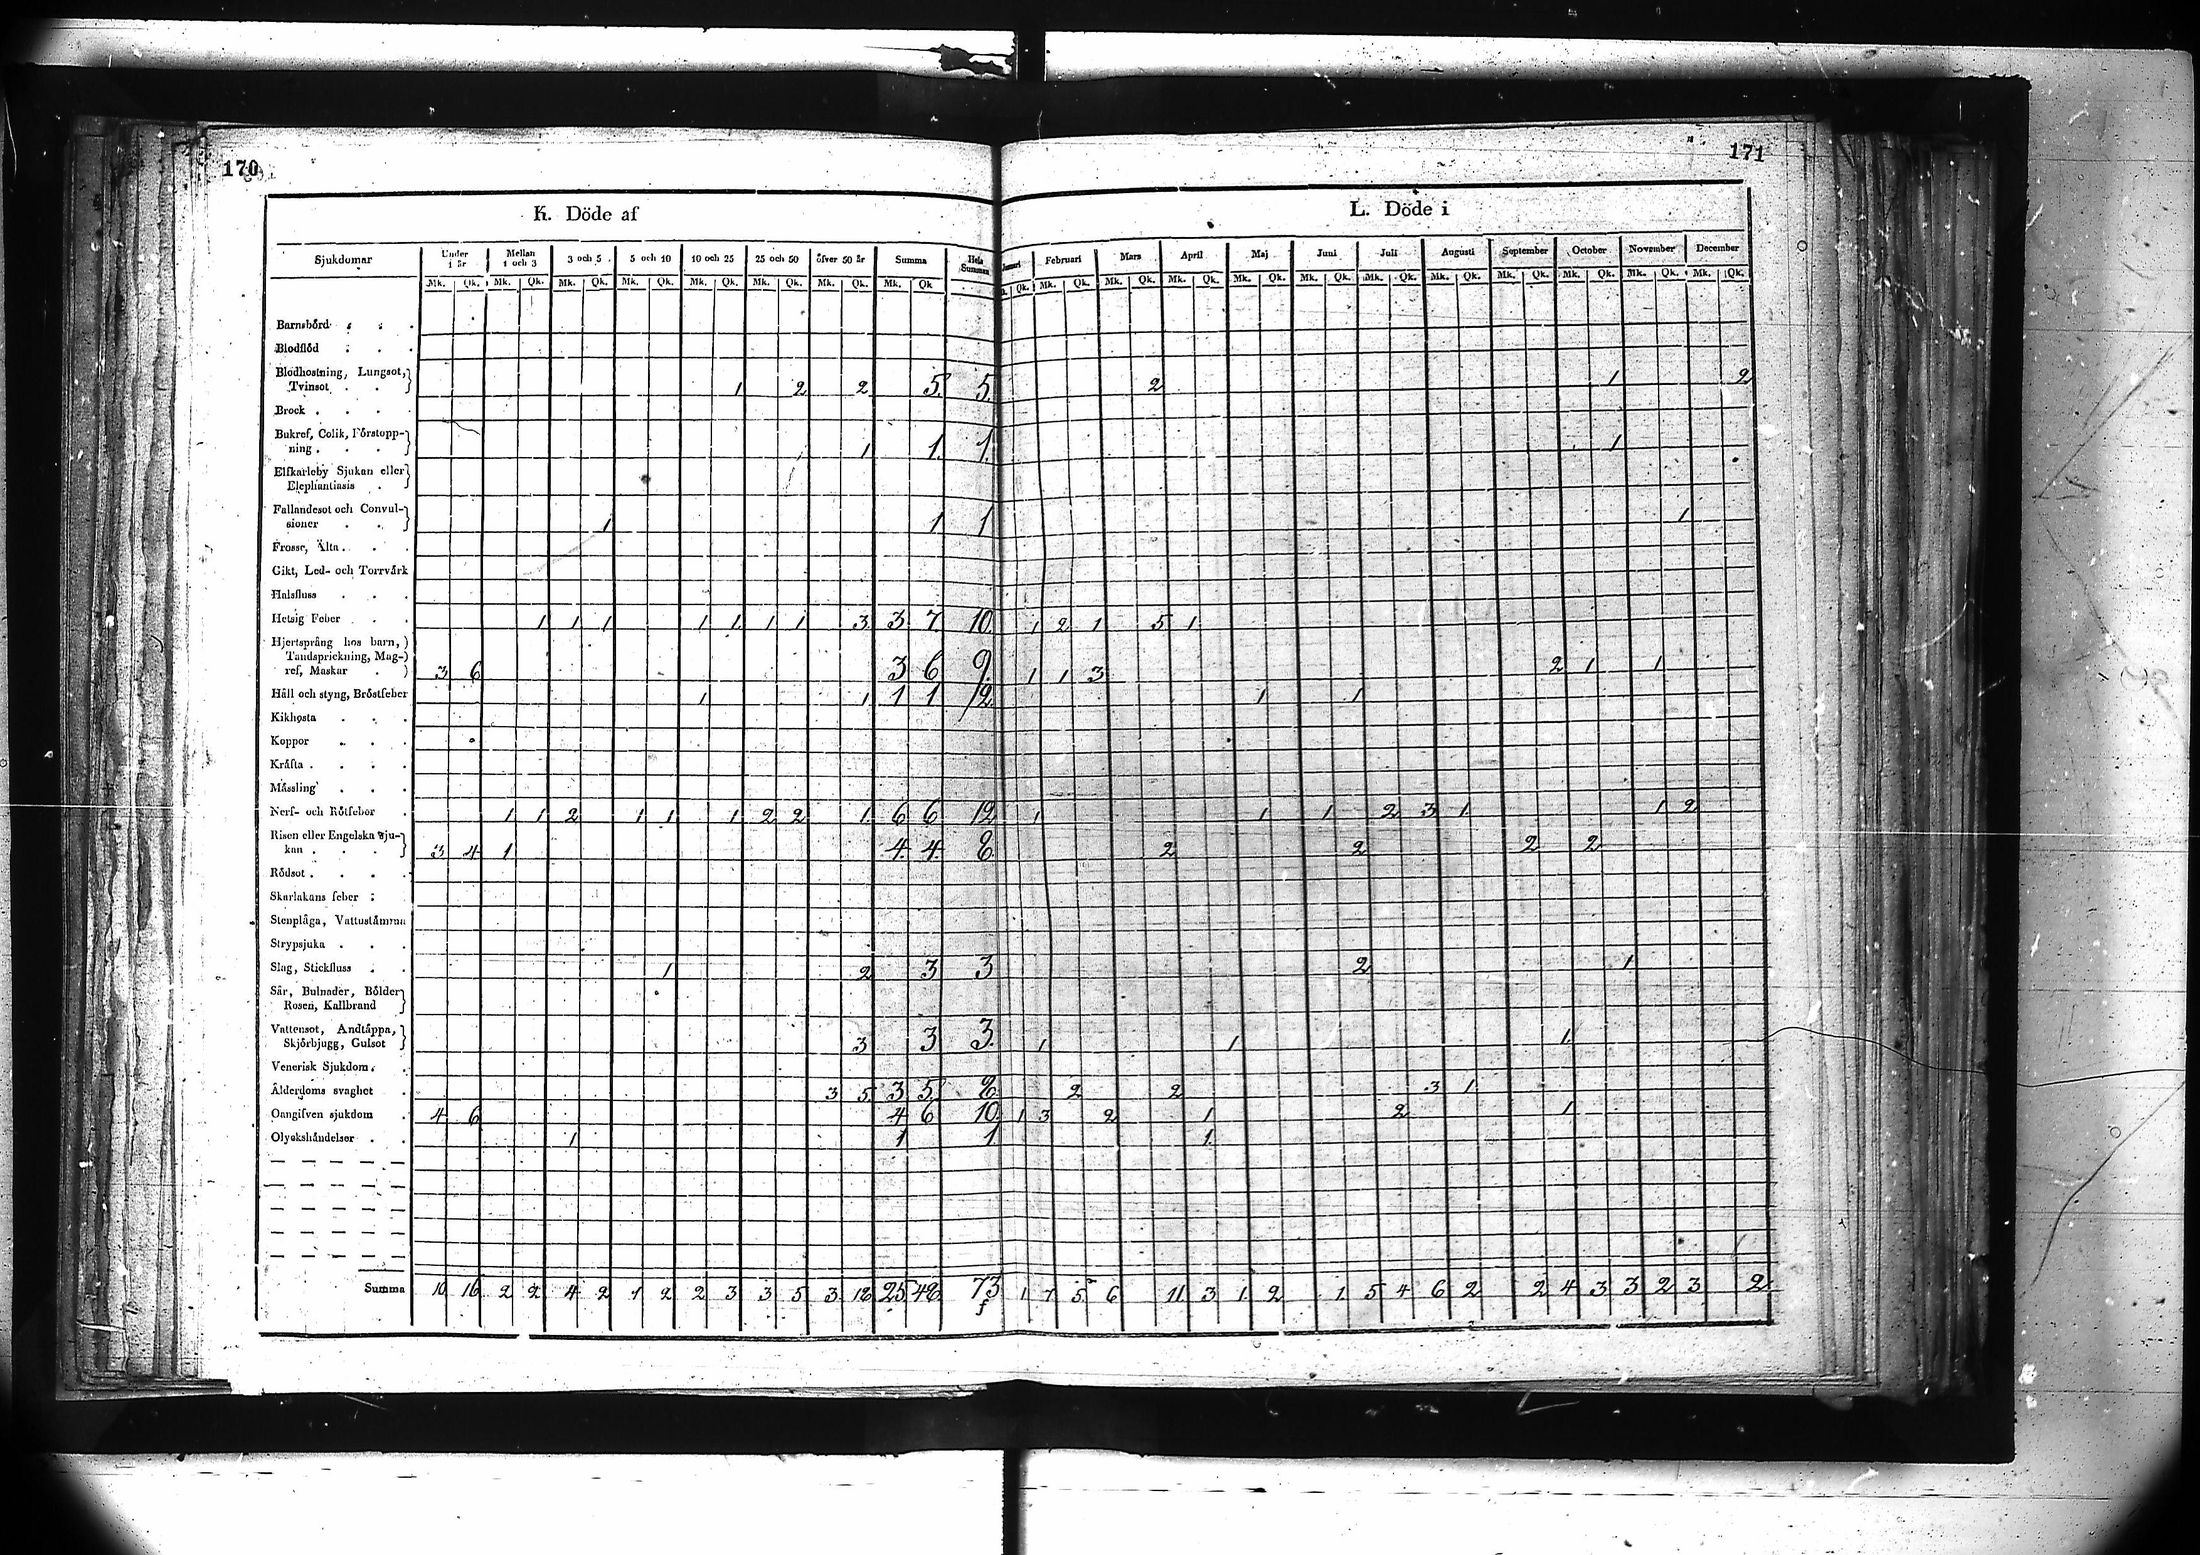 170
171
K. Döde af
L. Döde i
Sjukdomar Under 1 år Mellan 1 och 3 3 och 5 5 och 10 10 och 25 25 och 50 öfver 50 år Summa Hela Summan Februari Mars April Maj Juni Juli Augusti September October November December
Mk. Qk. Mk. Qk. Mk. Qk. Mk. Qk. Mk. Qk. Mk. Qk. Mk. Qk. Mk. Qk Qk. Mk. Qk. Mk. Qk. Mk. Qk. Mk. Qk. Mk. Qk. Mk. Qk. Mk. Qk. Mk. Qk. Mk. Qk. Mk. Qk. Mk. Qk.
Barnsbörd
Blodflöd
Blodhostning, Lungsot,
Tvinsot 1 2 2 5 5 2 1 2
Brock
Bukref, Colik, Förstopp-
ning 1 1 1 1
Elfkarleby Sjukan eller
Elephantiasis
Fallandesot och Convul-
sioner 1 1 1 1
Frossr, Älta
Gikt, Led- och Torrvårk
Halsfluss
Hetsig Feber 1 1 1 1 1 1 1 3 3 7 10 1 2 1 5 1
Hjertsprång hos barn,
Tandsprickning, Mag-
ref, Maskar 3 6 3 6 9 1 1 3 2 1 1
Håll och styng, Bröstfeber 1 1 1 1 2 1 1
Kikhosta
Koppor
Kräfta
Mässling
Nerf- och Rötfeber 1 1 2 1 1 1 2 2 1 6 6 12 1 1 1 2 3 1 1 2
Risen eller Engelska Sju-
kan 3 4 1 4 4 8 2 2 2 2
Rödsot
Skarlakans feber
Stenplåga, Vattustämma
Strypsjuka
Slag, Stickfluss 1 2 3 3 2 1
Sår, Bulnader, Bölder
Rosen, Kallbrand
Vattensot, Andtäppa,
Skjörbjugg, Gulsot 3 3 3 1 1 1
Venerisk Sjukdom
Ålderdoms svaghet 3 5 3 5 8 2 2 3 1
Oangifven sjukdom 4 6 4 6 10 1 3 2 1 2 1
Olyckshändelser 1 1 1 1
Summa 10 16 2 2 4 2 1 2 2 3 3 5 3 18 25 48 73 1 7 5 6 11 3 1 2 1 5 4 6 2 2 4 3 3 2 3 2